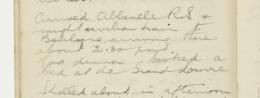 Arrived Abbeville R.S &
caught civilian train to
Boulogne, arriving there
about 2.30 p.m.
Had dinner, booked a
bed at the Grand Louvre
Strolled about in afternoon